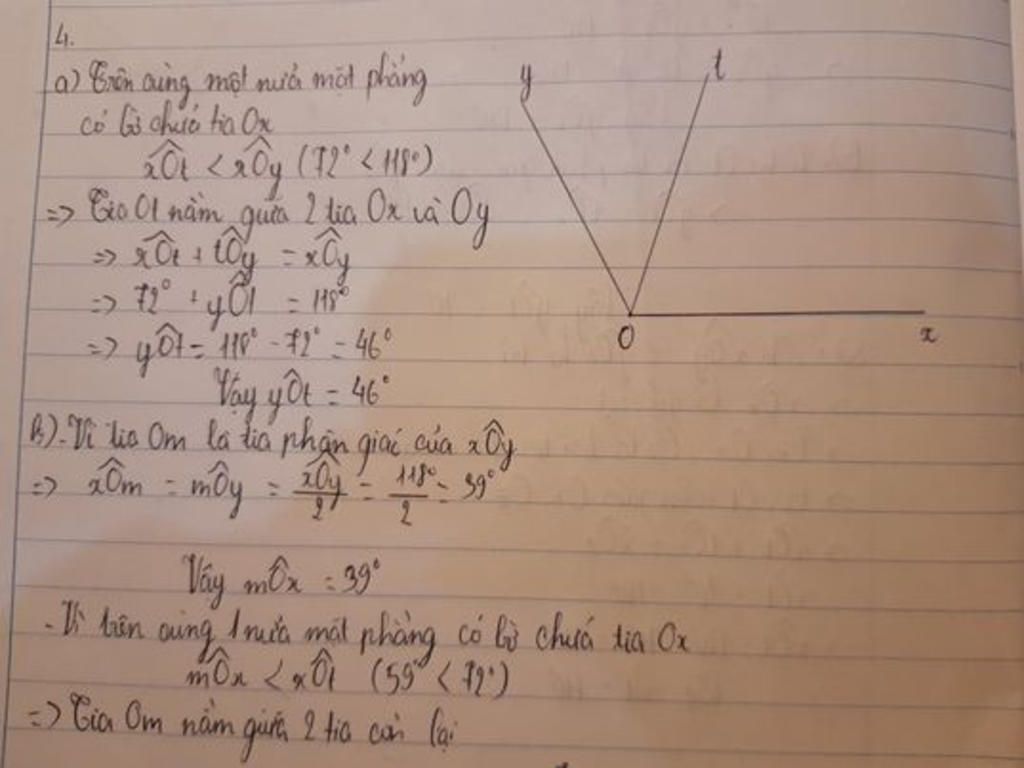 4.
a) Trên cùng một nửa mặt phẳng
có bờ chứa tia Ox
xÔt < xÔy (72° < 118°)
=> Tia Ot nằm giữa 2 tia Ox và Oy
=> xÔt + tÔy = xÔy
=> 72° + yÔt = 118°
=> yÔt = 118° - 72° = 46°
Vậy yÔt = 46°
b) - Vì tia Om là tia phân giác của xÔy
=> xÔm = mÔy = xÔy/2 = 118°/2 = 39°
Vậy mÔx = 39°
- Vì trên cùng 1 nửa mặt phẳng có bờ chứa tia Ox
mÔx < xÔt (59° < 72°)
=> Tia Om nằm giữa 2 tia còn lại
y
t
O
x